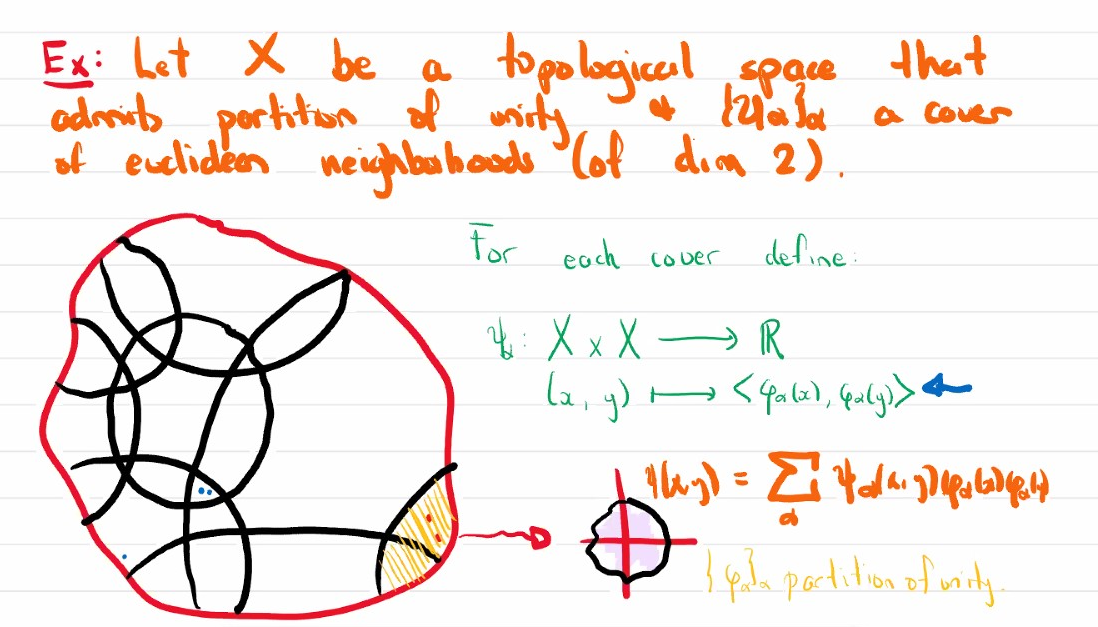 Ex: Let X be a topological space that
admits partition of unity & {Uα}α a cover
of euclidean neighborhoods (of dim 2).
For each cover define:
ψα: X × X ⟶ ℝ
(x, y) ⟼ <φα(x), φα(y)>
ψ(x,y) = Σα ψα(x,y)φα(x)φα(y)
{φα}α partition of unity.